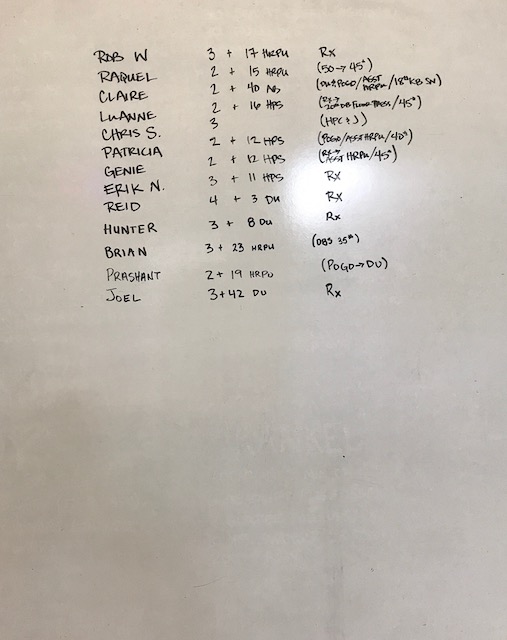 ROB W 3 + 17 HRPU Rx
RAQUEL 2 + 15 HRPU (50→45#)
CLAIRE 2 + 40 AB POGO/ASST HRPU/18# KB SN)
LUANNE 2 + 16 HPS (Rx→ 20# DB FLOOR PRESS/45#)
CHRIS S. 3 (HPC & J)
PATRICIA 2 + 12 HPS (POGO/ASST HRPU/40#)
GENIE 2 + 12 HPS (Rx→ ASST HRPU/45#)
ERIK N. 3 + 11 HPS Rx
REID 4 + 3 DU Rx
HUNTER 3 + 8 DU Rx
BRIAN 3 + 23 HRPU (DBS 35#)
PRASHANT 2 + 19 HRPU (POGO→DU)
JOEL 3 + 42 DU Rx